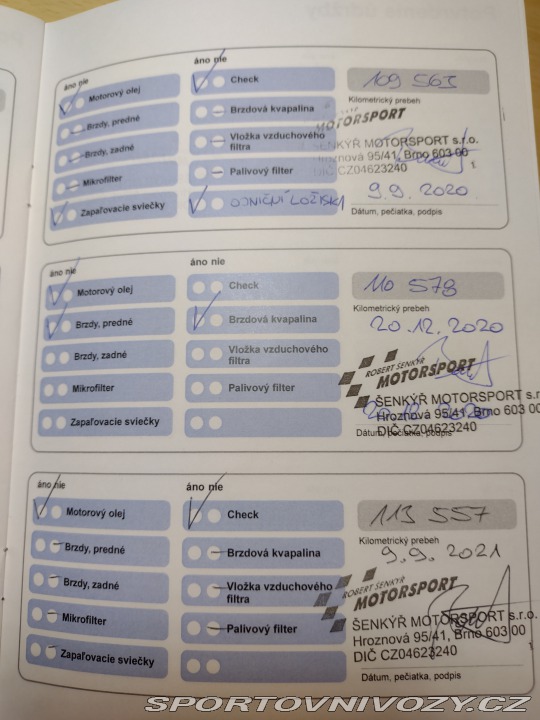 áno nie
áno nie
Motorový olej
Check
109 563
Brzdy, predné
Brzdová kvapalina
Kilometrický prebeh
MOTORSPORT
Brzdy, zadné
Vložka vzduchového
filtra
ŠENKÝŘ MOTORSPORT s.r.o.
Hroznová 95/41, Brno 603 00
CZ04623240
Mikrofilter
Palivový filter
9.9.2020
Zapaľovacie sviečky
OJNIČNÍ LOŽISKA
Dátum, pečiatka, podpis
áno nie
áno nie
Motorový olej
Check
110 578
Kilometrický prebeh
Brzdy, predné
Brzdová kvapalina
20.12.2020
Brzdy, zadné
Vložka vzduchového
filtra
ROBERT ŠENKÝŘ
MOTORSPORT
Mikrofilter
Palivový filter
ŠENKÝŘ MOTORSPORT s.r
Hroznová 95/41, Brno 603 00
Zapaľovacie sviečky
DIČ CZ04623240
Dátum, pečiatka, podpis
áno nie
áno nie
Motorový olej
Check
113 557
Kilometrický prebeh
Brzdy, predné
Brzdová kvapalina
9.9.2021
Brzdy, zadné
Vložka vzduchového
filtra
ROBERT ŠENKÝŘ
MOTORSPORT
Mikrofilter
Palivový filter
ŠENKÝŘ MOTORSPORT s.r.o.
Hroznová 95/41, Brno 603 00
DIČ CZ04623240
Zapaľovacie sviečky
Dátum, pečiatka, podpis
SPORTOVNIVOZY.CZ